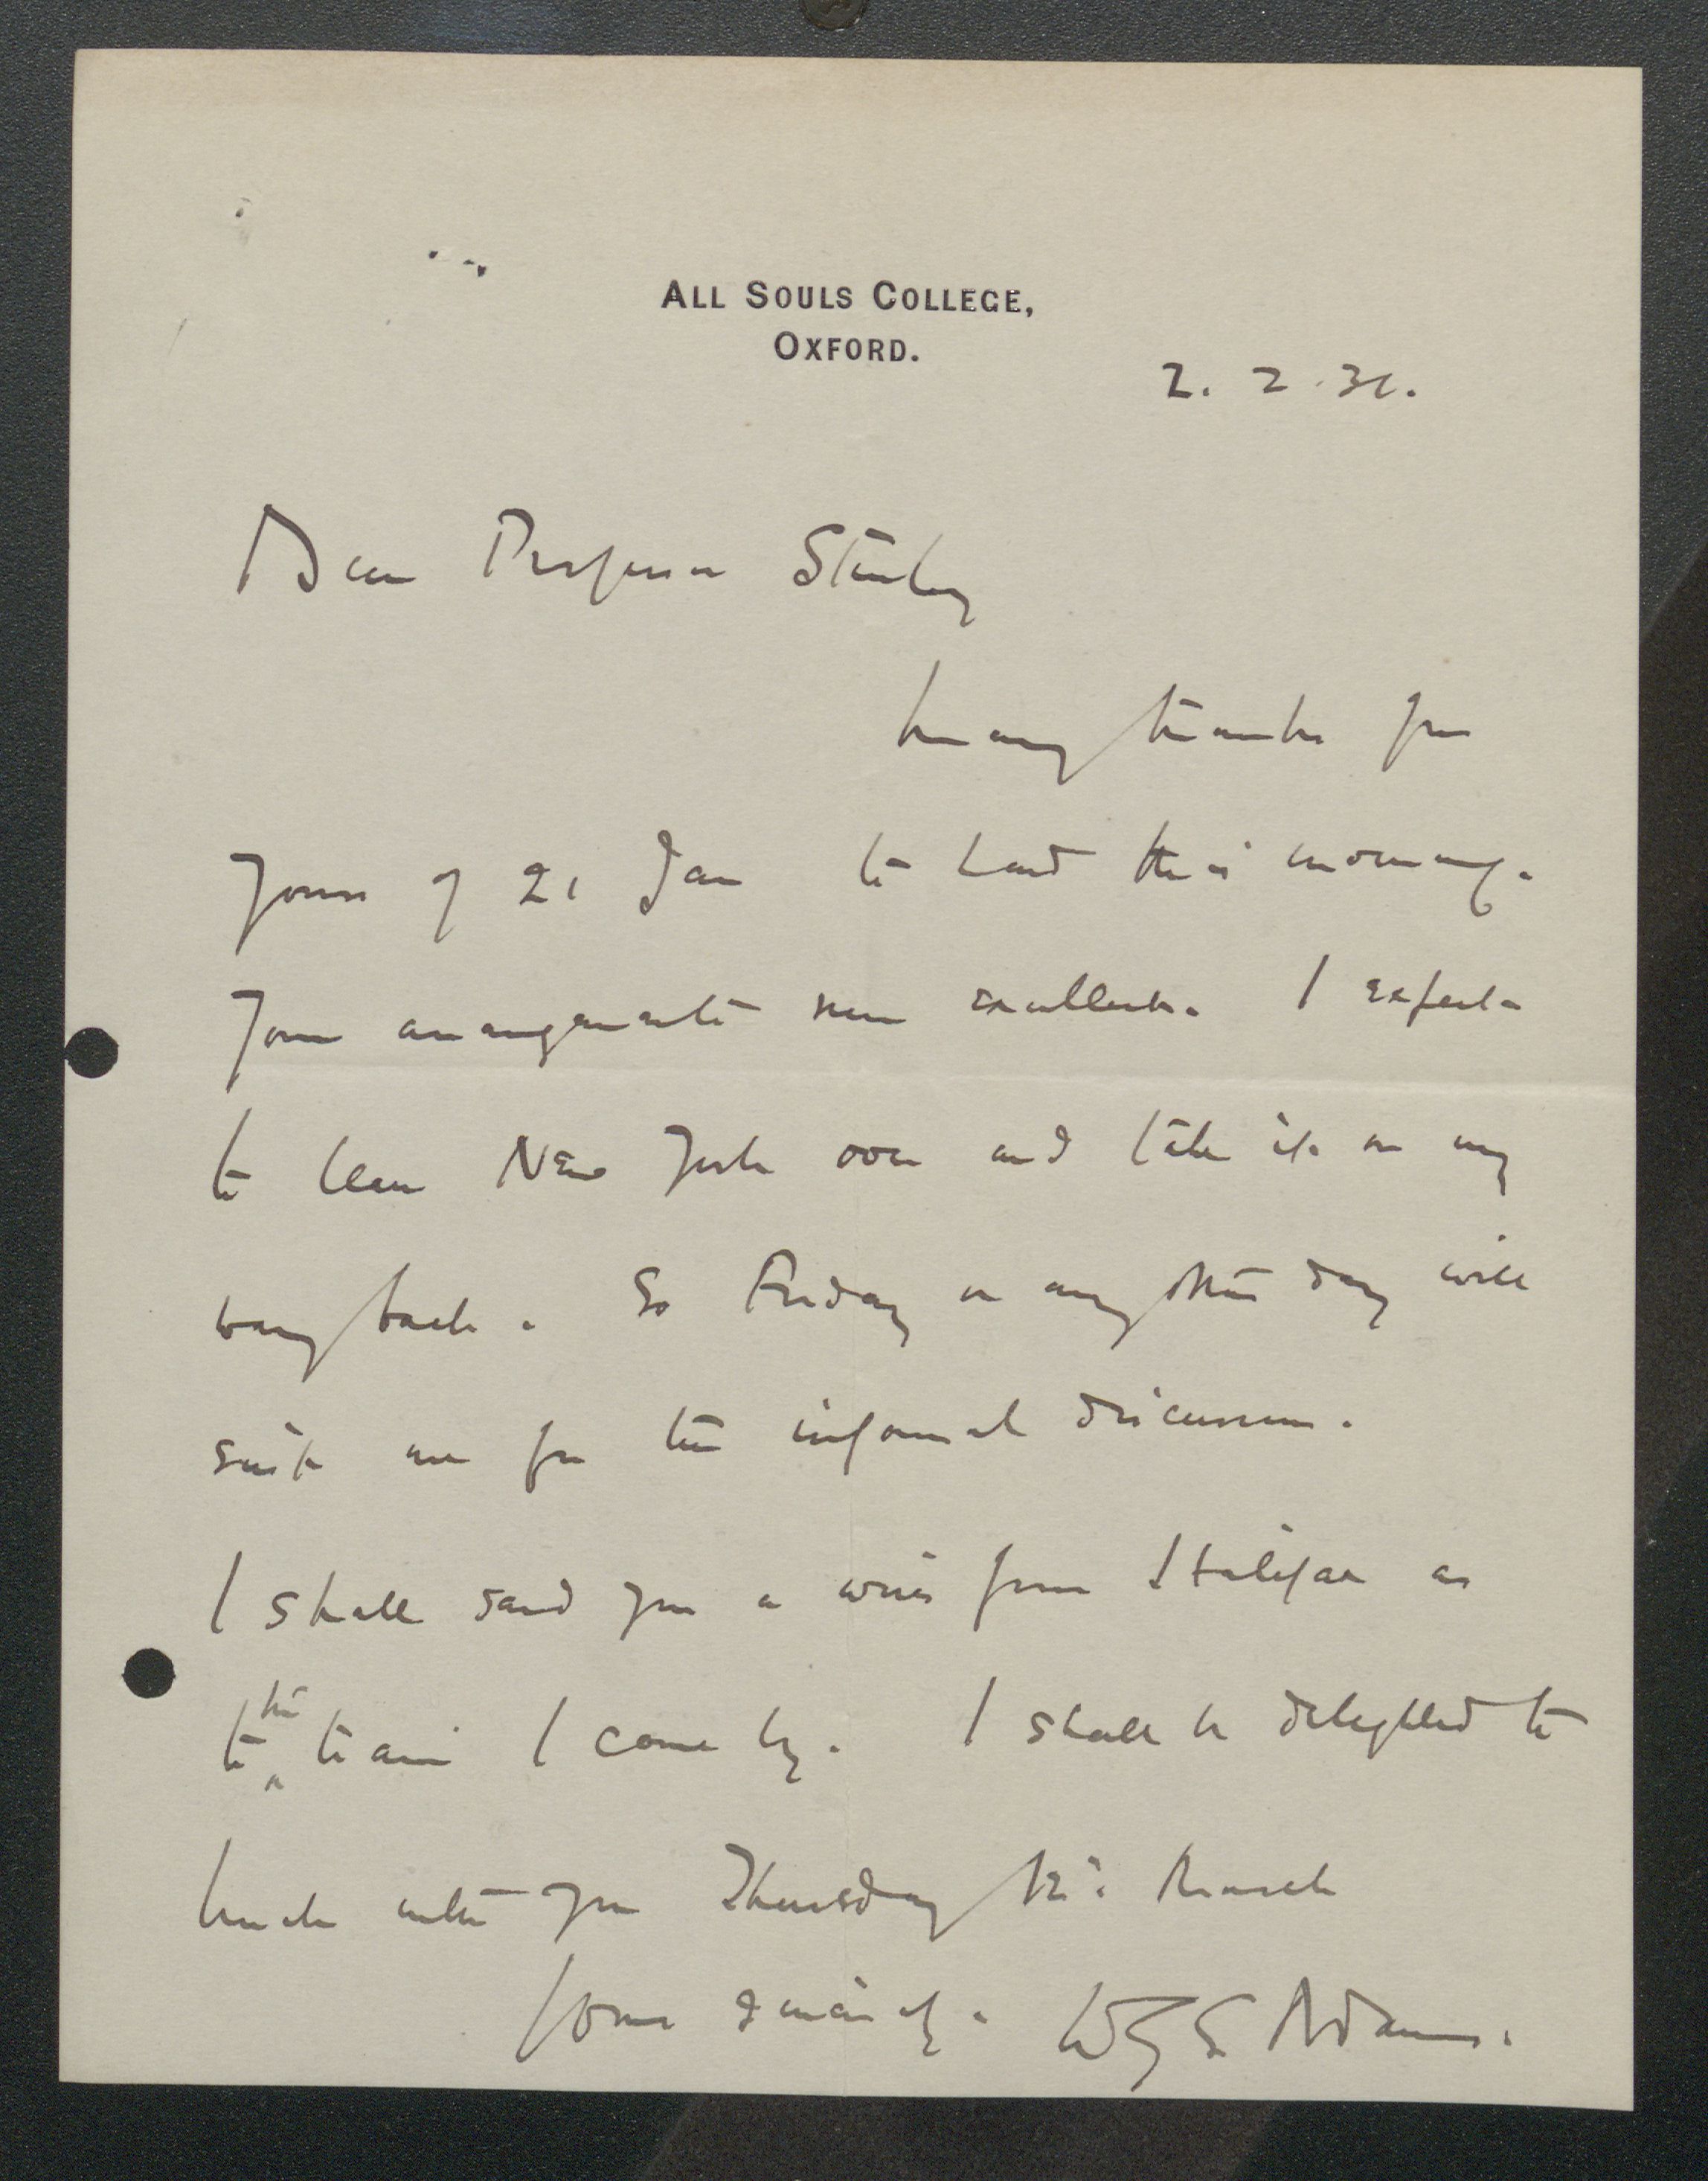 ALL SOULS COLLEGE,
OXFORD.
2. 2. 31.
Dear Professor Stanley
Many thanks for
yours of 21 Jan to hand this morning.
Your arrangements seem excellent. I expect
to leave New York over and take it on my
way back. So Friday or any other day will
suit me for the informal discussion.
I shall send you a wire from Halifax as
to the train I come by. I shall be delighted to
lunch with you Thursday 12: March
Yours sincerely. WGS Adams.